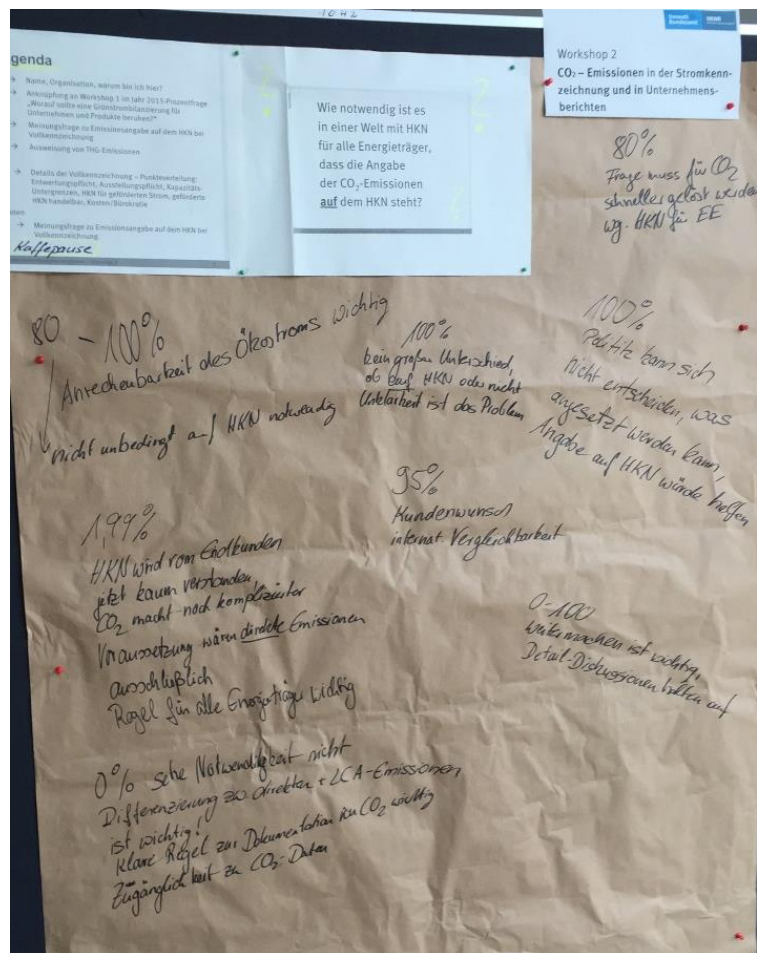 genda
→ Name, Organisation, warum bin ich hier?
→ Anknüpfung an Workshop 1 im Jahr 2015-Prozentfrage
„Worauf sollte eine Grünstrombilanzierung für
Unternehmen und Produkte beruhen?“
→ Meinungsfrage zu Emissionsangabe auf dem HKN bei
Vollkennzeichnung
→ Ausweisung von THG-Emissionen
→ Details der Vollkennzeichnung – Punkteverteilung:
Entwertungspflicht, Ausstellungspflicht, Kapazitäts-
Untergrenzen, HKN für geförderten Strom, geförderte
HKN handelbar, Kosten/Bürokratie
→ Meinungsfrage zu Emissionsangabe auf dem HKN bei
Vollkennzeichnung
Kaffepause
Wie notwendig ist es
in einer Welt mit HKN
für alle Energieträger,
dass die Angabe
der CO₂-Emissionen
auf dem HKN steht?
Umwelt
Bundesamt
HKNR
Workshop 2
CO₂ – Emissionen in der Stromkenn-
zeichnung und in Unternehmens-
berichten
80%
Frage muss für CO₂
schneller gelöst werden
wg. HKN für EE
80 – 100%
Anrechenbarkeit des Ökostroms wichtig
nicht unbedingt auf HKN notwendig
100%
kein großer Unterschied,
ob auf HKN oder nicht
Unklarheit ist das Problem
100%
Politik kann sich
nicht entscheiden, was
angesetzt werden kann,
Angabe auf HKN würde helfen
95%
Kundenwunsch
internat. Vergleichbarkeit
1,99%
HKN wird vom Endkunden
jetzt kaum verstanden!
CO₂ macht noch komplizierter
Voraussetzung wären direkte Emissionen
ausschließlich
Regel für alle Energieträger wichtig
0-100
weitermachen ist wichtig,
Detail-Diskussionen halten auf
0% sehe Notwendigkeit nicht
Differenzierung zw. direkten + LCA-Emissionen
ist wichtig!
klare Regel zur Dokumentation von CO₂ wichtig
Zugänglichkeit zu CO₂-Daten